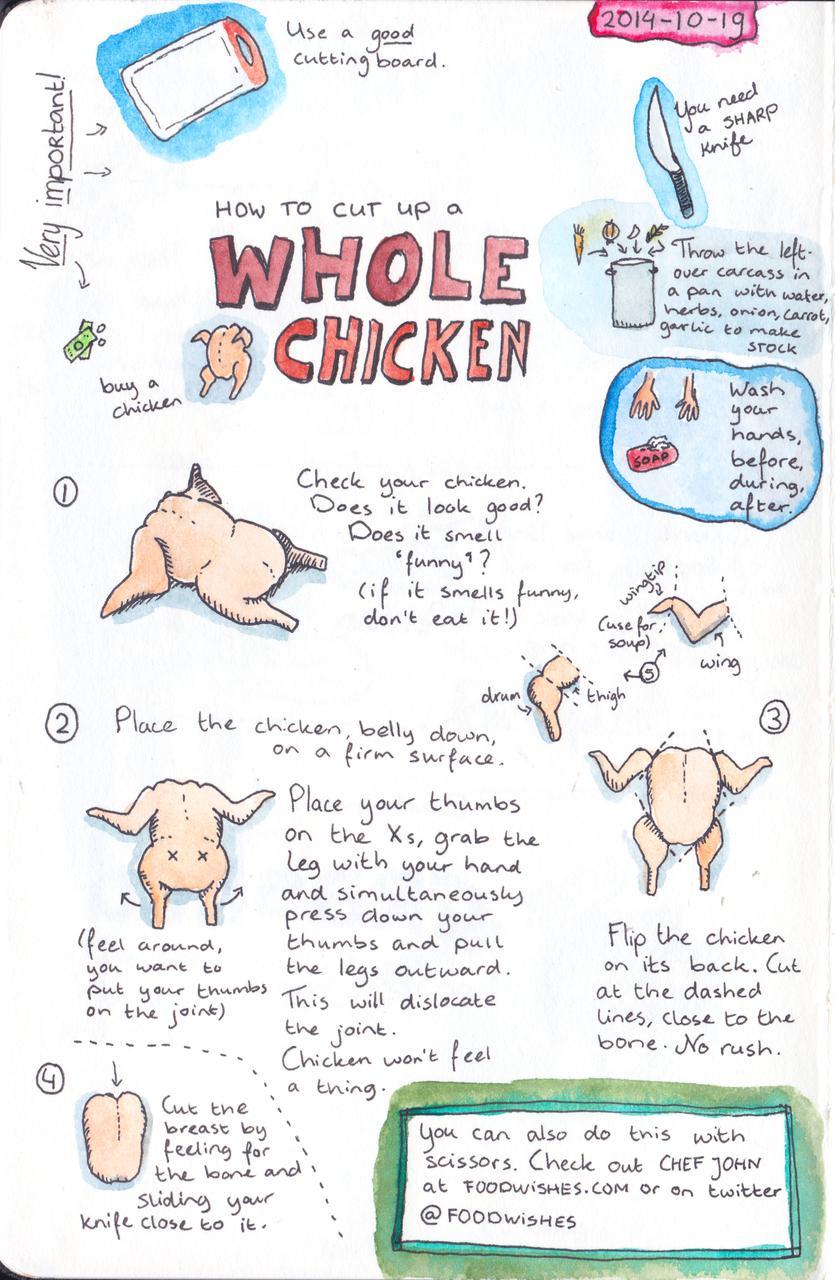 2014-10-19
Use a good
cutting board.
Very important!
You need
a SHARP
knife
HOW TO CUT UP A
WHOLE
CHICKEN
Throw the left-
over carcass in
a pan with water,
herbs, onion, carrot,
garlic to make
STOCK
buy a
chicken
Wash
your
hands,
before,
during,
after.
SOAP
1
Check your chicken.
Does it look good?
Does it smell
'funny'?
(if it smells funny,
don't eat it!)
wingtip
(use for
soup)
wing
5
drum
thigh
2
Place the chicken, belly down,
on a firm surface.
Place your thumbs
on the Xs, grab the
leg with your hand
and simultaneously
press down your
thumbs and pull
the legs outward.
This will dislocate
the joint.
Chicken won't feel
a thing.
x x
(feel around,
you want to
put your thumbs
on the joint)
3
Flip the chicken
on its back. Cut
at the dashed
lines, close to the
bone. No rush.
4
Cut the
breast by
feeling for
the bone and
sliding your
knife close to it.
You can also do this with
scissors. Check out CHEF JOHN
at FOODWISHES.COM or on twitter
@FOODWISHES